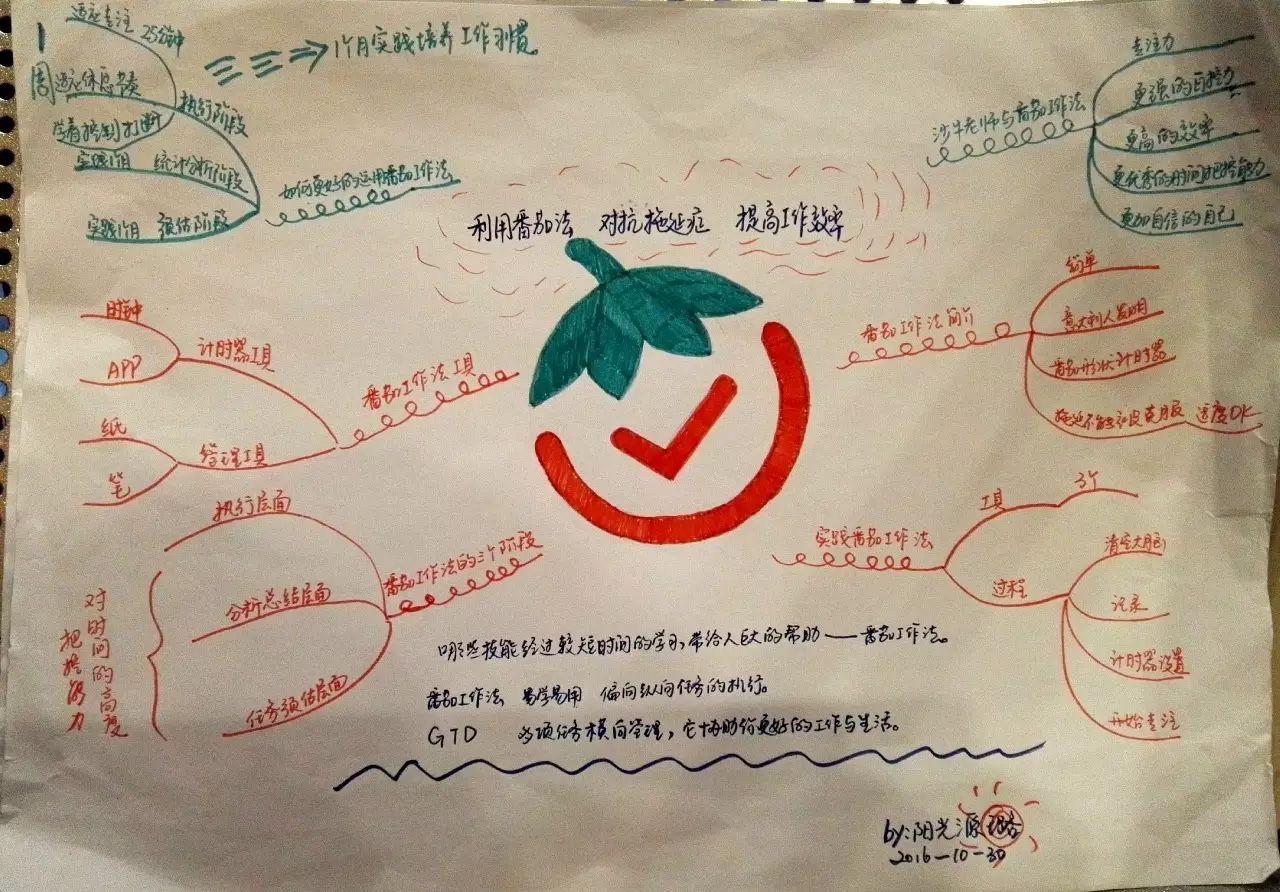 利用番茄法 对抗拖延症 提高工作效率
1周
适应专注 25分钟
适应休息节奏
学着控制打断
执行阶段
1个月实践培养工作习惯
实践1个月 统计分析阶段
实践1个月 预估阶段
如何更好的运用番茄工作法
时钟
APP
计时器工具
纸
笔
管理工具
番茄工作法工具
执行层面
分析总结层面
任务预估层面
番茄工作法的三个阶段
对时间的高度
把握能力
沙牛老师与番茄工作法
专注力
更强的自控力
更高的效率
更优秀的时间把控能力
更加自信的自己
番茄工作法简介
简单
意大利人发明
番茄形状计时器
适度OK
实践番茄工作法
工具
3个
过程
清空大脑
记录
计时器设置
开始专注
哪些技能经过较短时间的学习,带给人巨大的帮助——番茄工作法。
番茄工作法 易学易用 偏向纵向任务的执行。
GTD 多项任务横向管理,它协助你更好的工作与生活。
by:阳光源
2016-10-30